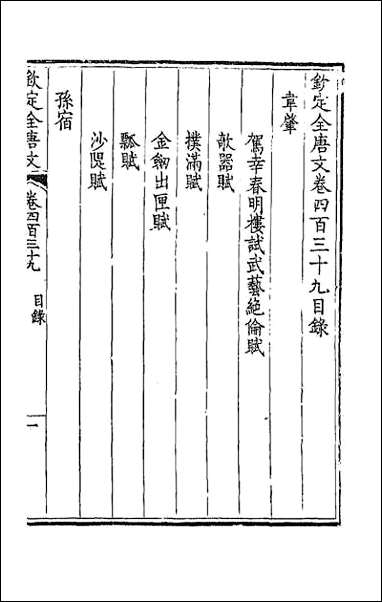 欽定全唐文卷四百三十九目錄
韋肇
駕幸春明樓試武藝絕倫賦
欹器賦
撲滿賦
金劒出匣賦
瓢賦
沙隄賦
孫宿
欽定全唐文
卷四百三十九
目錄
一